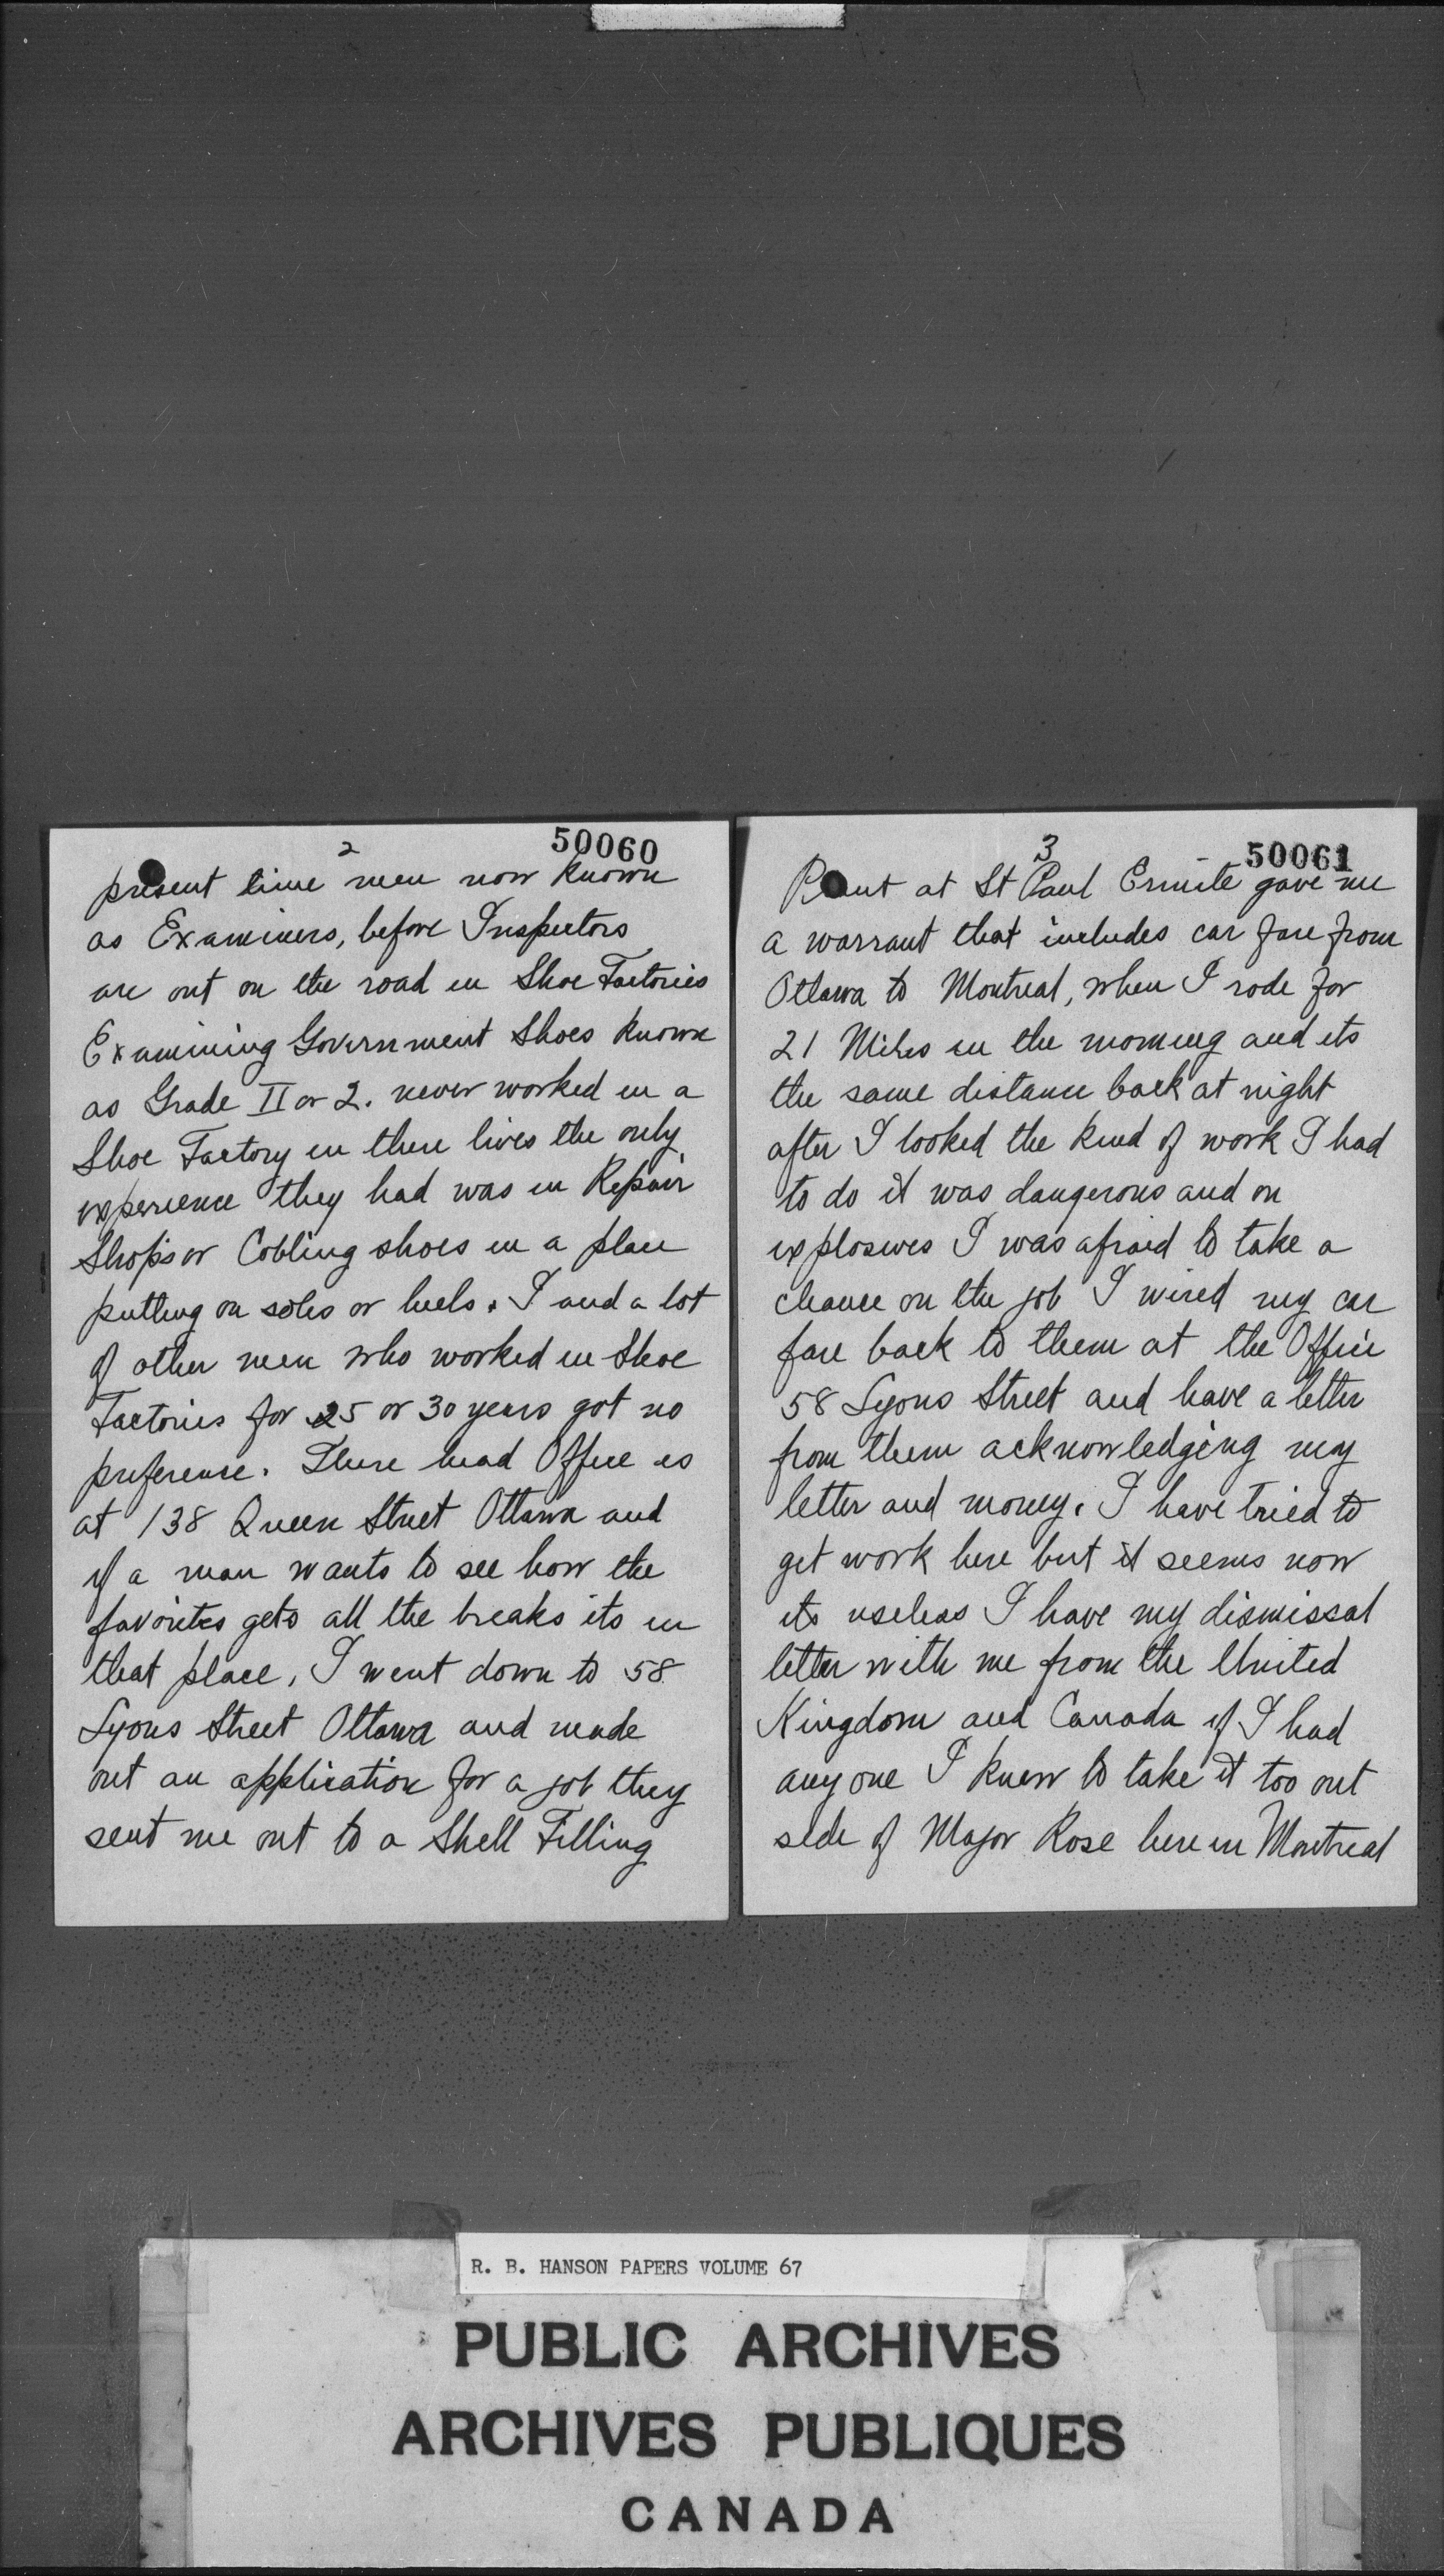 2
50060
present time men now known
as Examiners, before Inspectors
are out on the road in Shoe Factories
Examining Government Shoes known
as Grade II or 2. never worked in a
Shoe Factory in there lives the only
experience they had was in Repair
Shops or Cobling shoes in a place
putting on soles or heels. I and a lot
of other men who worked in Shoe
Factories for 25 or 30 years got no
preference. There head Office is
at 138 Queen Street Ottawa and
if a man wants to see how the
favorites gets all the breaks its in
that place, I went down to 58
Lyons Street Ottawa and made
out an application for a job they
sent me out to a Shell Filling
3
50061
Plant at St Paul Ermite gave me
a warrant that includes car fare from
Ottawa to Montreal, when I rode for
21 Miles in the morning and its
the same distance back at night
after I looked the kind of work I had
to do it was dangerous and on
explosives I was afraid to take a
chance on the job I wired my car
fare back to them at the Office
58 Lyons Street and have a letter
from them acknowledging my
letter and money. I have tried to
get work here but it seems now
its useless I have my dismissal
letter with me from the United
Kingdom and Canada if I had
any one I knew to take it too out
side of Major Rose here in Montreal
R. B. HANSON PAPERS VOLUME 67
PUBLIC ARCHIVES
ARCHIVES PUBLIQUES
CANADA